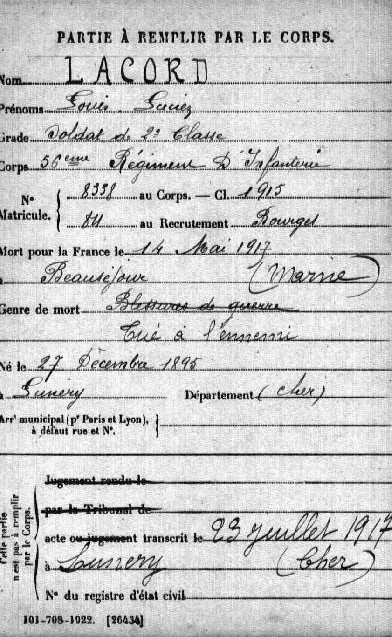 PARTIE À REMPLIR PAR LE CORPS.
Nom LACORD
Prénoms Louis
Grade Soldat de 2e Classe
Corps 56eme Régiment D'Infanterie
N° Matricule. { 8338 au Corps. — Cl. 1915
84 au Recrutement Bourges
Mort pour la France le 14 Mai 1917
à Beauséjour (Marne)
Genre de mort Blessures de guerre
Tué à l'ennemi
Né le 27 Décembre 1895
à Lunery Département (Cher)
Arrt municipal (pr Paris et Lyon), à défaut rue et N°. }
Cette partie n'est pas à remplir par le Corps.
Jugement rendu le
par le Tribunal de
acte ou jugement transcrit le 23 juillet 1917
à Lunery (Cher)
N° du registre d'état civil
101-708-1922. [26434]